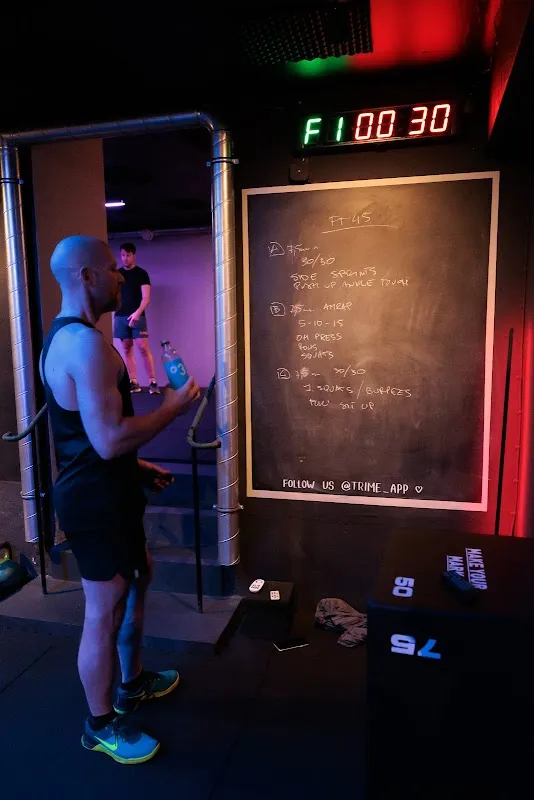 F1 00 30
FT 45
A
30/30
SIDE SPRINTS
PUSH UP ANKLE TOUCH
B AMRAP
5-10-15
OH PRESS
SQUATS
C 30/30
J. SQUATS / BURPEES
SIT UP
FOLLOW US @TRIME_APP ♡
03
MAKE YOUR
MARK
50
75